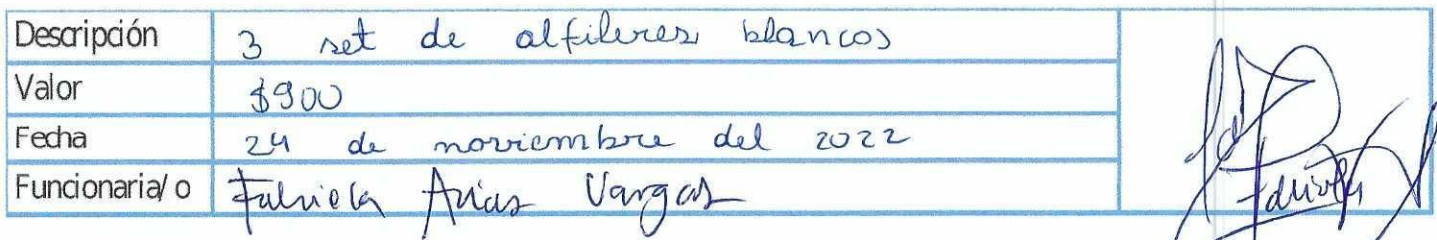 Descripción 3 set de alfileres blancos
Valor $900
Fecha 24 de noviembre del 2022
Funcionaria/o Arias Vargas